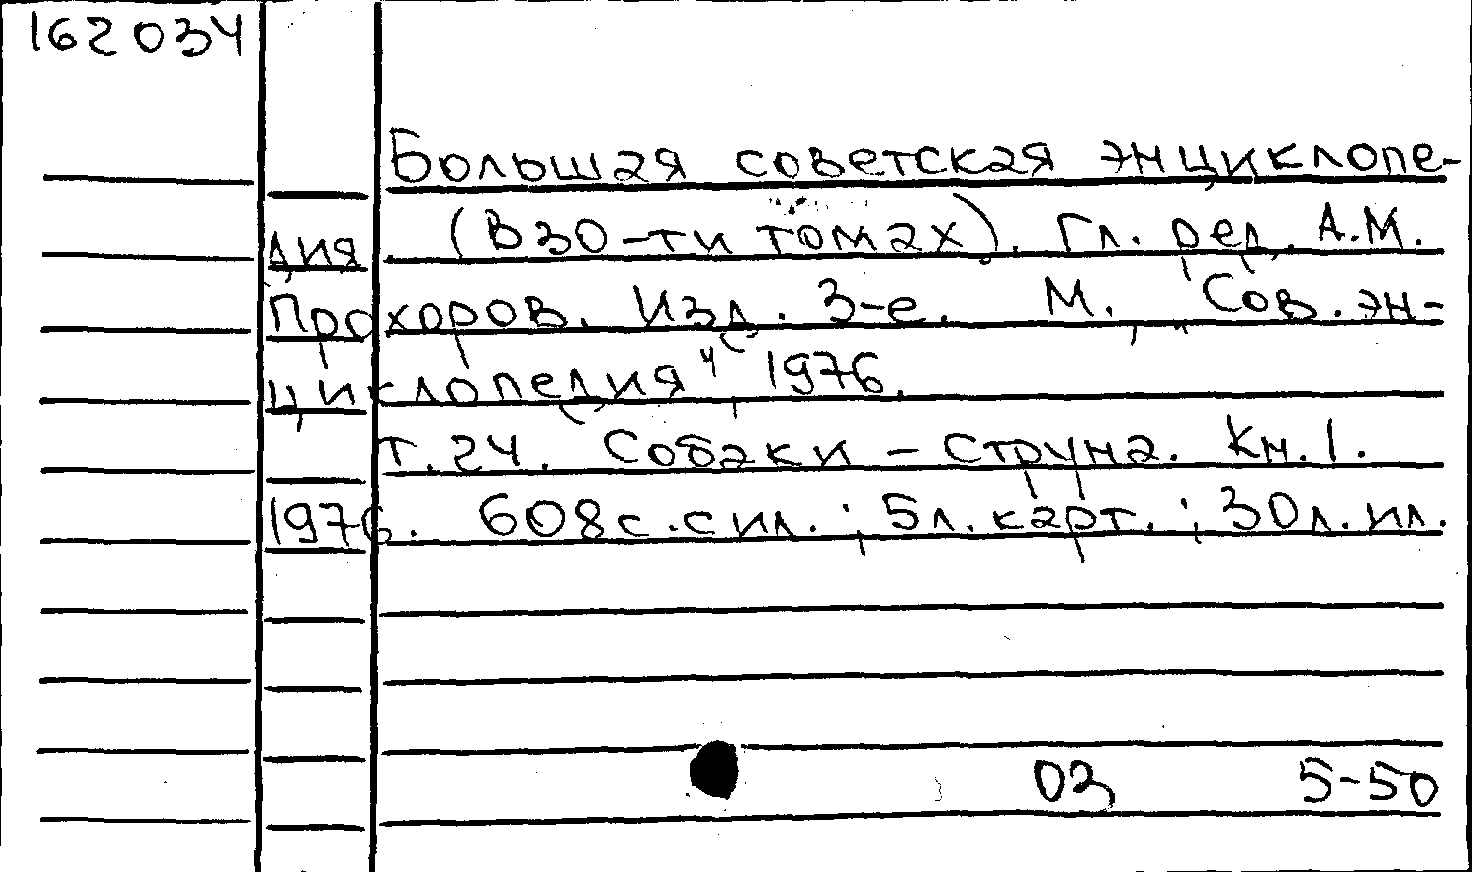 162034
Большая советская энциклопе-
дия. (В 30-ти томах). Гл. ред. А.М.
Прохоров. Изд. 3-е. М., „Сов. эн-
циклопедия", 1976.
т. 24. Собаки – Струна. Кн. 1.
1976. 608 с. с ил.; 5 л. карт.; 30 л. ил.
03 5-50